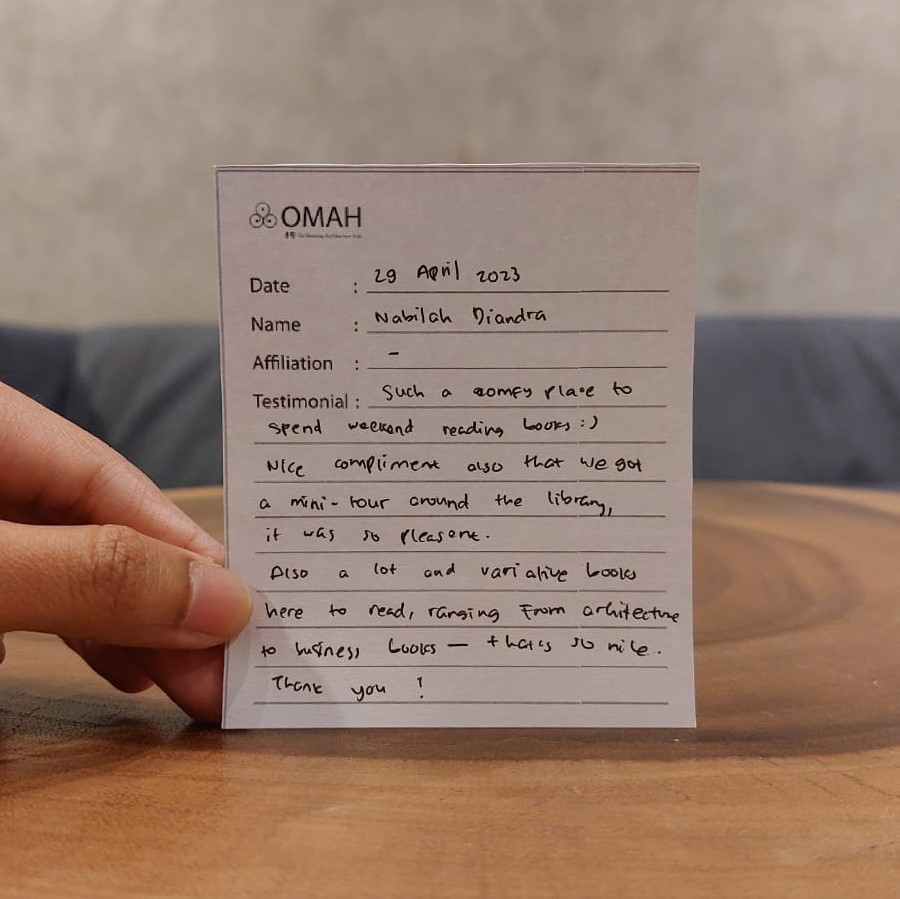 OMAH
Date : 29 April 2023
Name : Nabilah Diandra
Affiliation : -
Testimonial : Such a comfy place to
spend weekend reading books :)
Nice compliment also that we got
a mini-tour around the library,
it was so pleasant.
Also a lot and variative books
here to read, ranging from architecture
to business books — that's so nice.
Thank you !